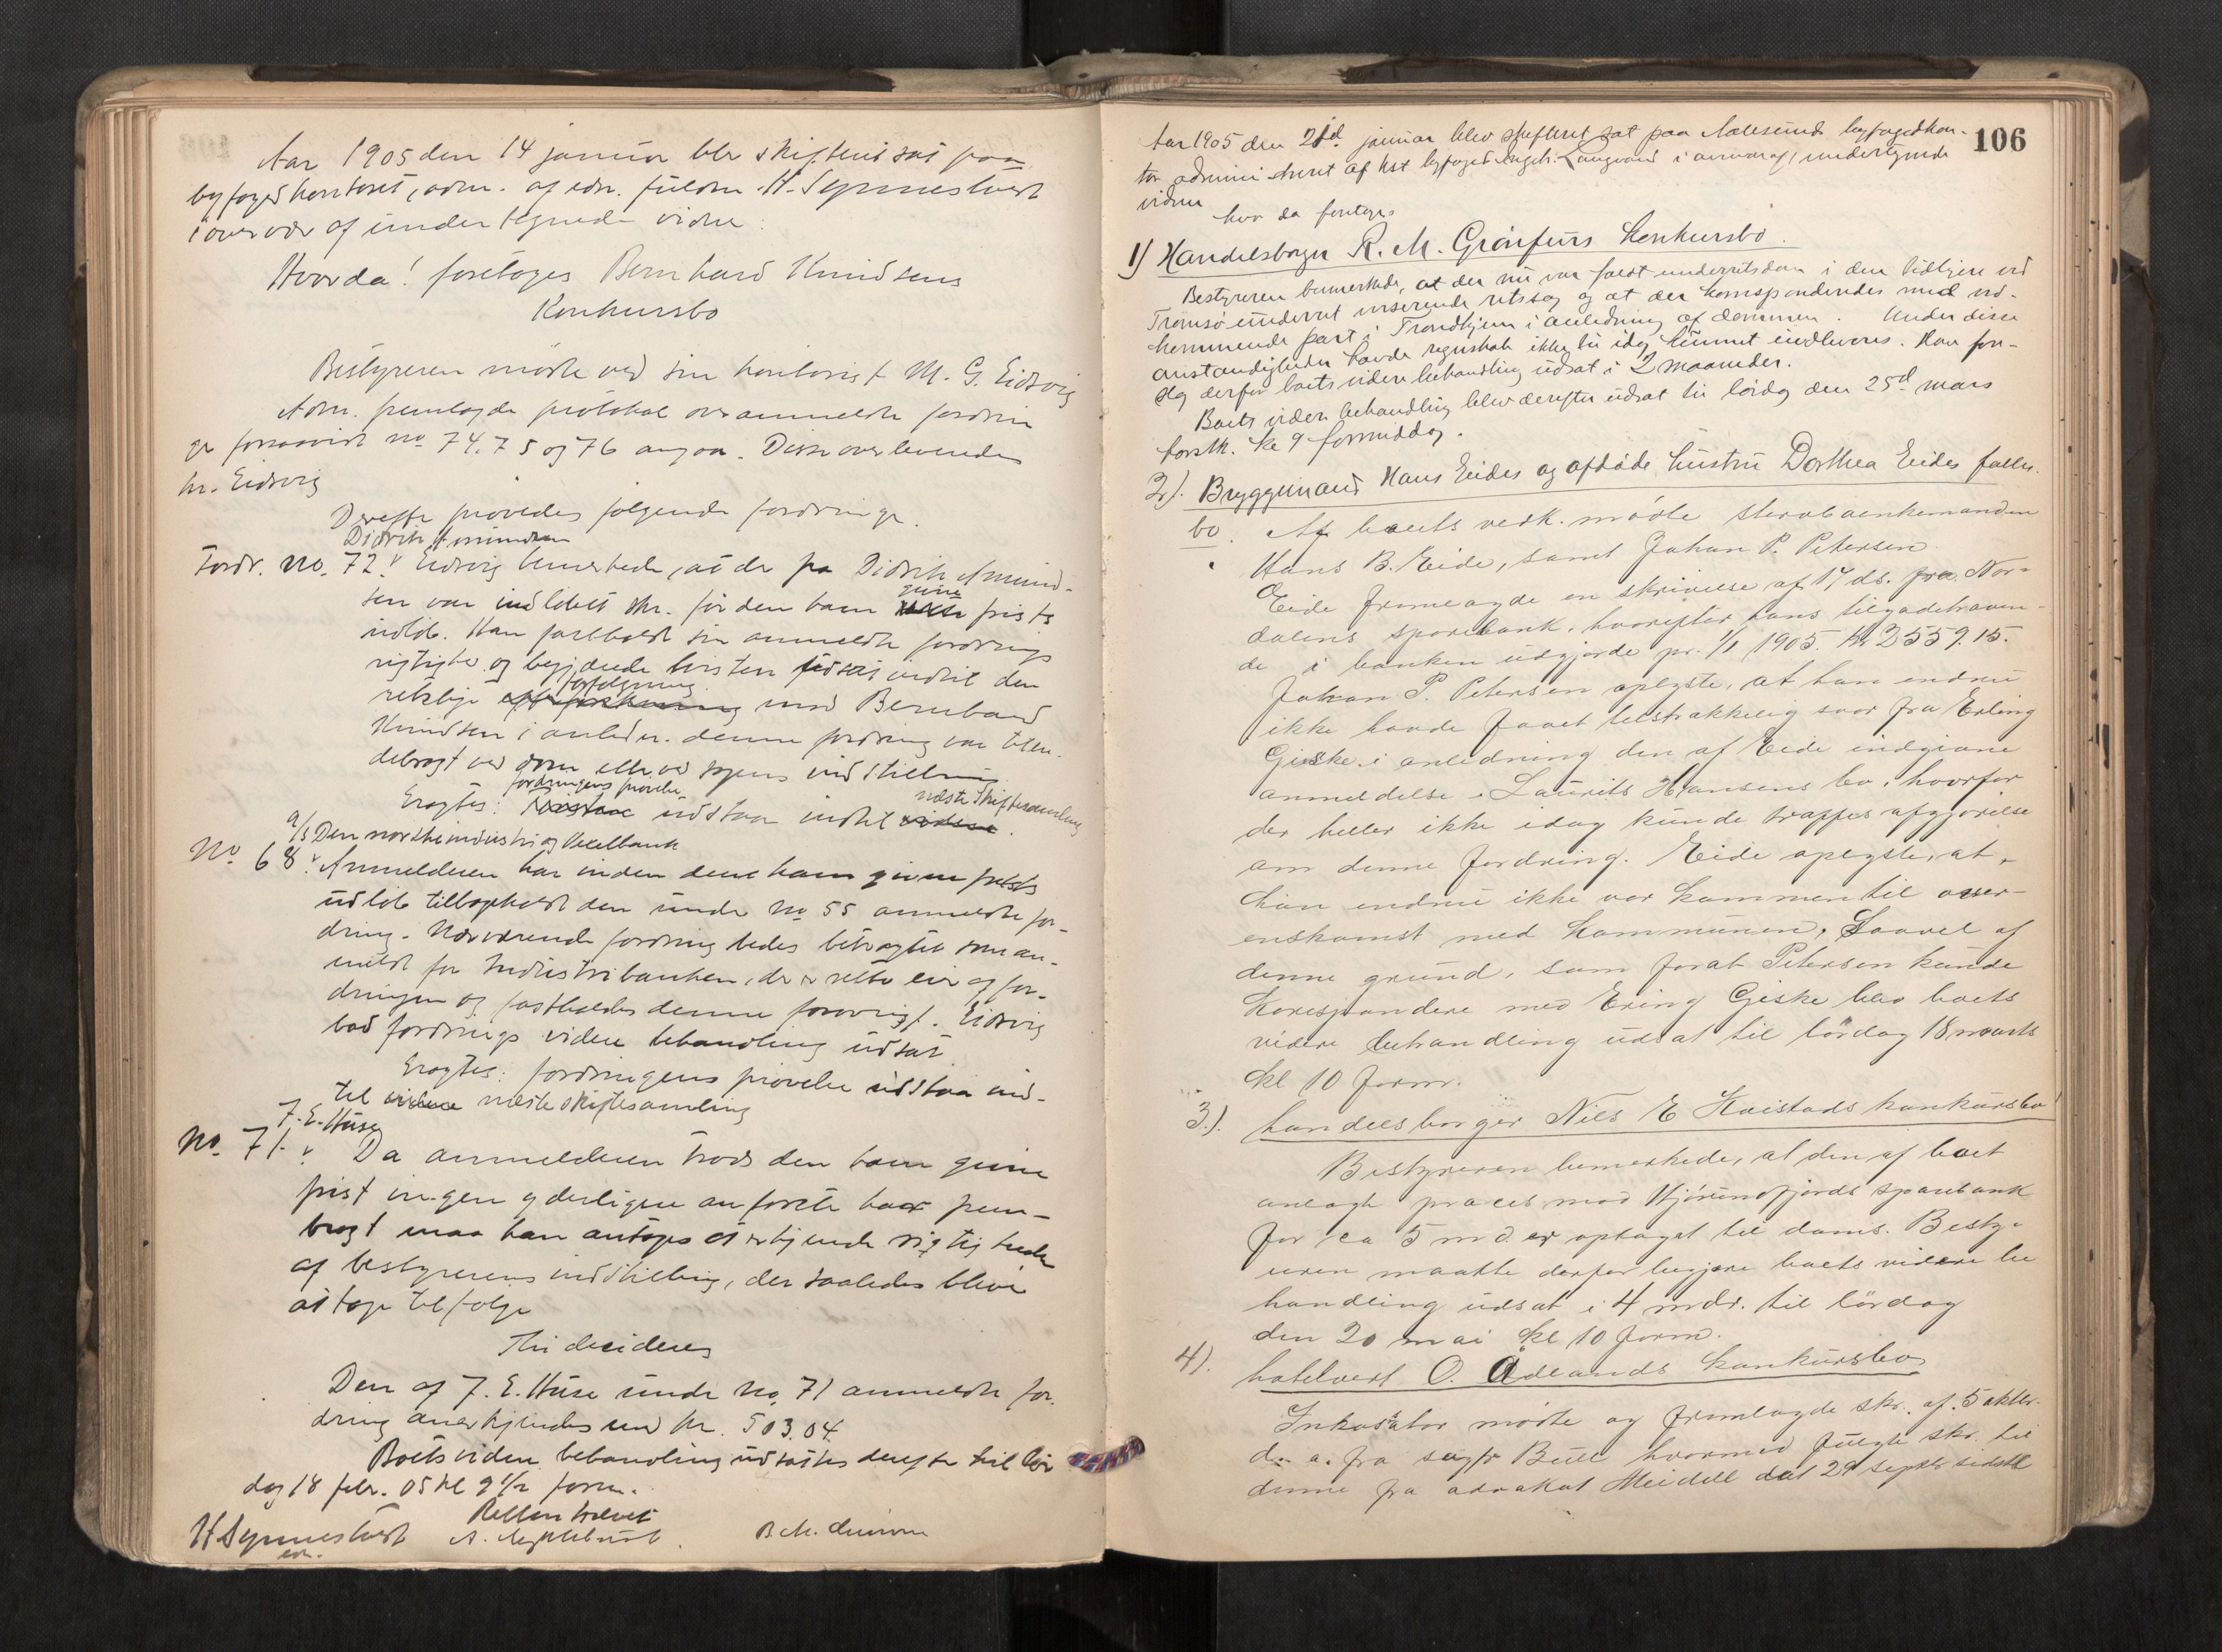 Aar 1905 den 14 januar blev skifteret sat paa
byfogedkontoret, adm. af edsv. fuldm. H. Synnestvedt
i overvær af undertegnede vidne:
Hvorda! foretoges Bernhard Knudsens
Konkursbo
Bestyreren mødte ved sin kontorist M. G. Eidsvig
Adm. fremlagde protokol over anmeldte fordrin
ger forsaavidt no 74, 75 og 76 angaa. Disse overleveredes
hr. Eidsvig
Derefter prøvedes følgende fordringer.
Didrik Amundsen
Fordr. no. 72. Eidsvig bemerkede, at der fra Didrik Amund-
sen var indløbet skr. før den ham givne frists
udløb. Han fastholdt sin anmeldte fordrings
rigtighed og begjærede tvisten udsat indtil den
retslige forfølgning mod Bernhard
Knudsen i anledn. denne fordring var tilen-
debragt ved dom eller ved sagens indstilling.
Eragtes: fordringens prøvelse udstaar indtil næste skiftesamling.
a/s Den norske industri og Vexelbank
No 68. Anmelderen har inden den ham givne frists
udløb tilbageholdt den under no 55 anmeldte for-
dring. Nærværende fordring bedes betragtet som an-
meldt for Industribanken, der er rette eier af for-
dringen og fastholdes denne forøvrigt. Eidsvig
bad fordrings videre behandling udsat
Eragtes: fordringens prøvelse udstaar ind-
til næste skiftesamling
J. E. Huse
No. 71. Da anmelderen trods den ham givne
frist ingen yderligere anførsler har frem-
bragt maa han antages at erkjende rigtigheden
af bestyrerens indstilling, der saaledes bliver
at tage tilfølge
Thi decideres
Den af J. E. Huse under no. 71 anmeldte for-
dring anerkjendes med kr. 503.04.
Boets videre behandling udsattes derefter til lør
dag 18 febr. 05 kl 9 1/2 form.
Retten hævet
H Synnestvedt
edsv.
106
Aar 1905 den 21d januar blev skifteret sat paa Aalesunds byfogedkon-
tor administreret af kst byfoged Engelh. Langvand i overvær af undertegnede
vidne
hvor da foretoges
1) Handelsborger R. M. Grønfurs konkursbo.
Bestyreren bemerkede, at der nu var faldt underretsdom i den tidligere ved
Tromsø underret verserende retssag og at der korresponderedes med ved-
kommende part i Trondhjem i anledning af dommen. Under disse
omstændigheder havde regnskab ikke til idag kunnet indleveres. Han fore-
slog derfor boets videre behandling udsat i 2 maaneder.
Boets videre behandling blev derefter udsat til lørdag den 25d mars
førstk. kl 9 formiddag.
2). Bryggemand Hans Eides og afdøde hustru Dorthea Eides fælles-
bo. Af boets vedk. mødte sterboenkemanden
Hans B. Eide, samt Johan P. Petersen.
Eide fremlagde en skrivelse af 17 ds. fra Nor-
dalens sparebank, hvorefter hans tilgodehaven-
de i banken udgjorde pr. 1/1 1905. kr 2559.15.
Johan P. Petersen oplyste, at han endnu
ikke havde faaet tilstrækkelig svar fra Erling
Giske i anledning den af Eide indgivne
anmeldelse i Laurits Hansens bo, hvorfor
der heller ikke idag kunde træffes afgjørelse
om denne fordring. Eide oplyste, at
han endnu ikke var kommen til over-
enskomst med kommunen. Saavel af
denne grund, som forat Petersen kunde
korespondere med Ering Giske blev boets
videre behandling udsat til lørdag 18 marts
kl 10 form.
3.). handelsborger Nils E Kvistads konkursbo
Bestyreren bemerkede, at den af boet
anlagte proces mod Hjørundfjords sparebank
for ca 5 md. er optaget til doms. Besty-
reren maatte derfor begjære boets videre be
handling udsat i 4 mdr. til lørdag
den 20 mai kl 10 form.
4). hotelvert O. Ådlands konkursbo
Inkasator mødte og fremlagde skr. af 5 oktbr.
d. a. fra sagfr Bull hvormed fulgte skr. til
denne fra advokat Meidell dat 29 septbr sidstl